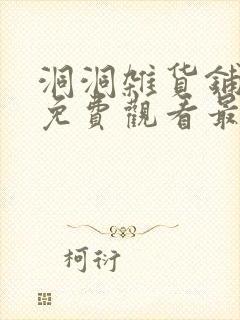 洞洞雜貨鋪
免費觀看最
柯衍